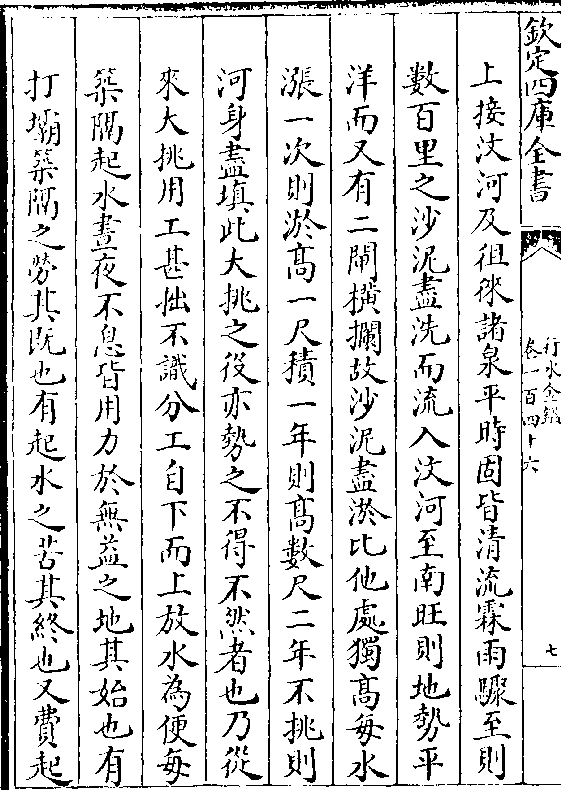 欽定四庫全書
行水金鑑
卷一百四十六
七
上接汶河及徂徠諸泉平時固皆清流霖雨驟至則
數百里之沙泥盡洗而流入汶河至南旺則地勢平
洋而又有二閘橫攔故沙泥盡淤比他處獨髙每水
漲一次則淤髙一尺積一年則髙數尺二年不挑則
河身盡填此大挑之役亦勢之不得不然者也乃從
來大挑用工甚拙不識分工自下而上放水為便每
築隔起水晝夜不息皆用力於無益之地其始也有
打壩築隔之勞其既也有起水之苦其終也又費起